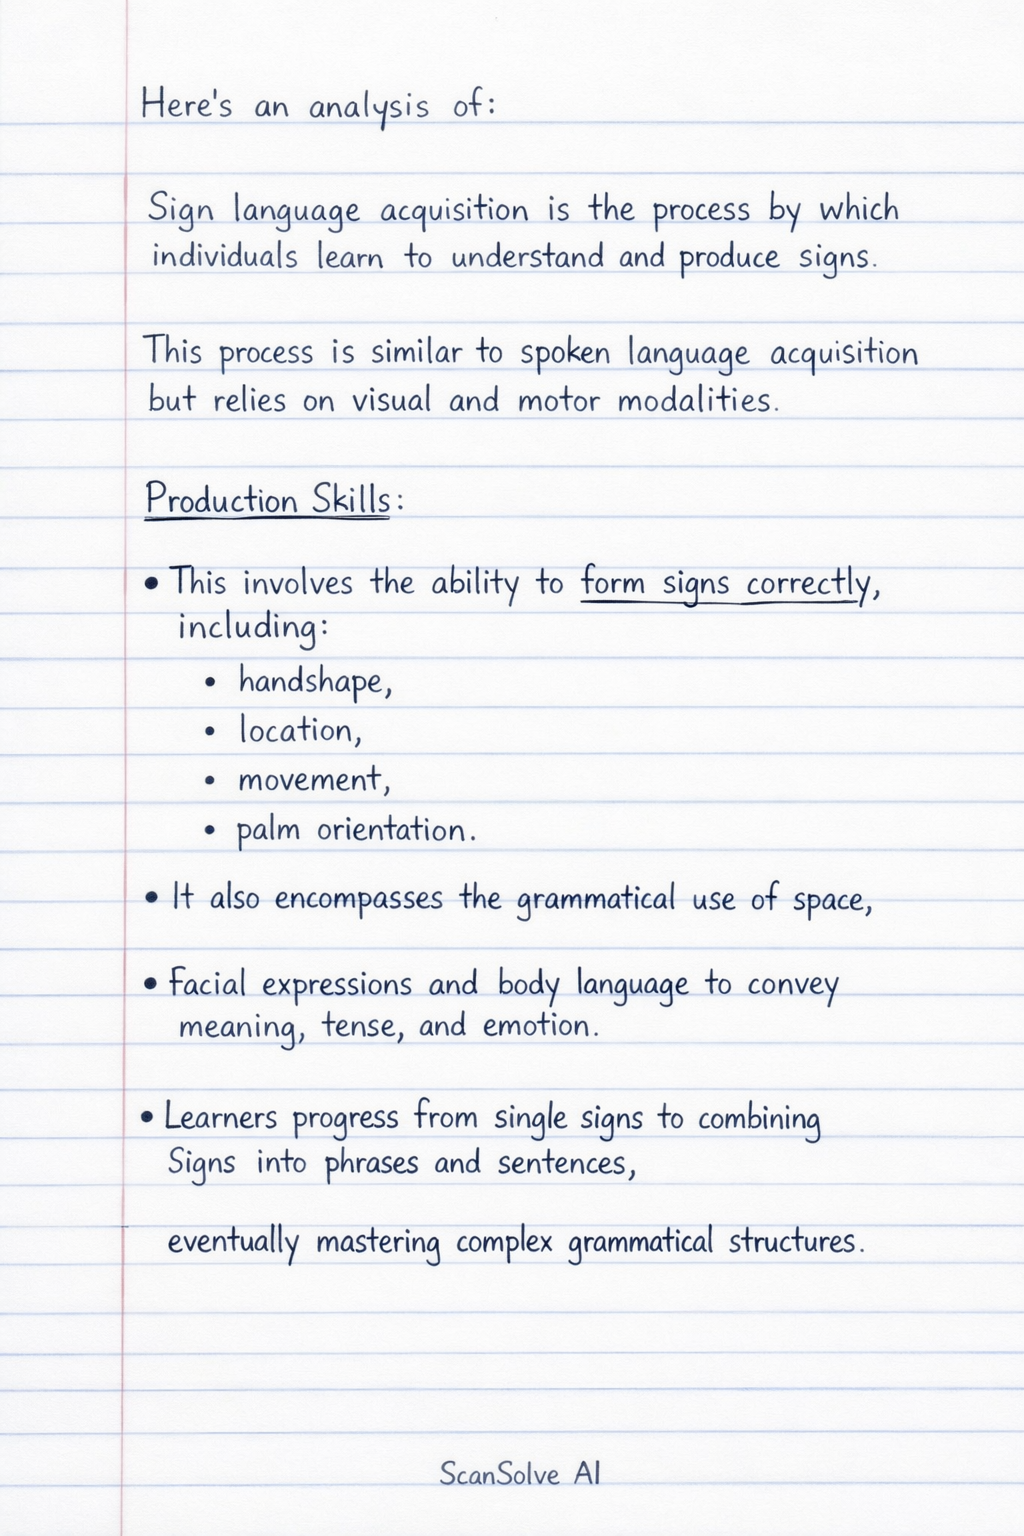 Here's an analysis of:
Sign language acquisition is the process by which
individuals learn to understand and produce signs.
This process is similar to spoken language acquisition
but relies on visual and motor modalities.
Production Skills:
• This involves the ability to form signs correctly,
including:
• handshape,
• location,
• movement,
• palm orientation.
• It also encompasses the grammatical use of space,
• Facial expressions and body language to convey
meaning, tense, and emotion.
• Learners progress from single signs to combining
Signs into phrases and sentences,
eventually mastering complex grammatical structures.
ScanSolve AI